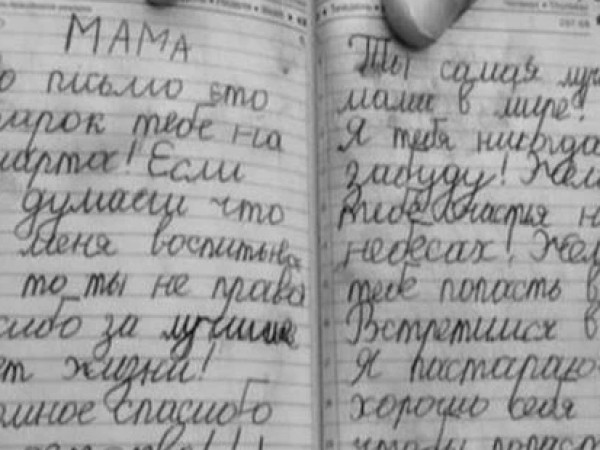 МАМА
о письмо это
арок тебе на
марта! Если
думаеш что
меня воспитыва
то ты не права
сибо за лучшие
ет жизни!
омное спасибо
Ты самая луч
мама в мире!
Я тебя никогда
забуду! Жел
тебе счастья н
небесах! Жел
тебе попасть в
Встретимся в
Я пастараю
хорошо себя
чтобы попаст